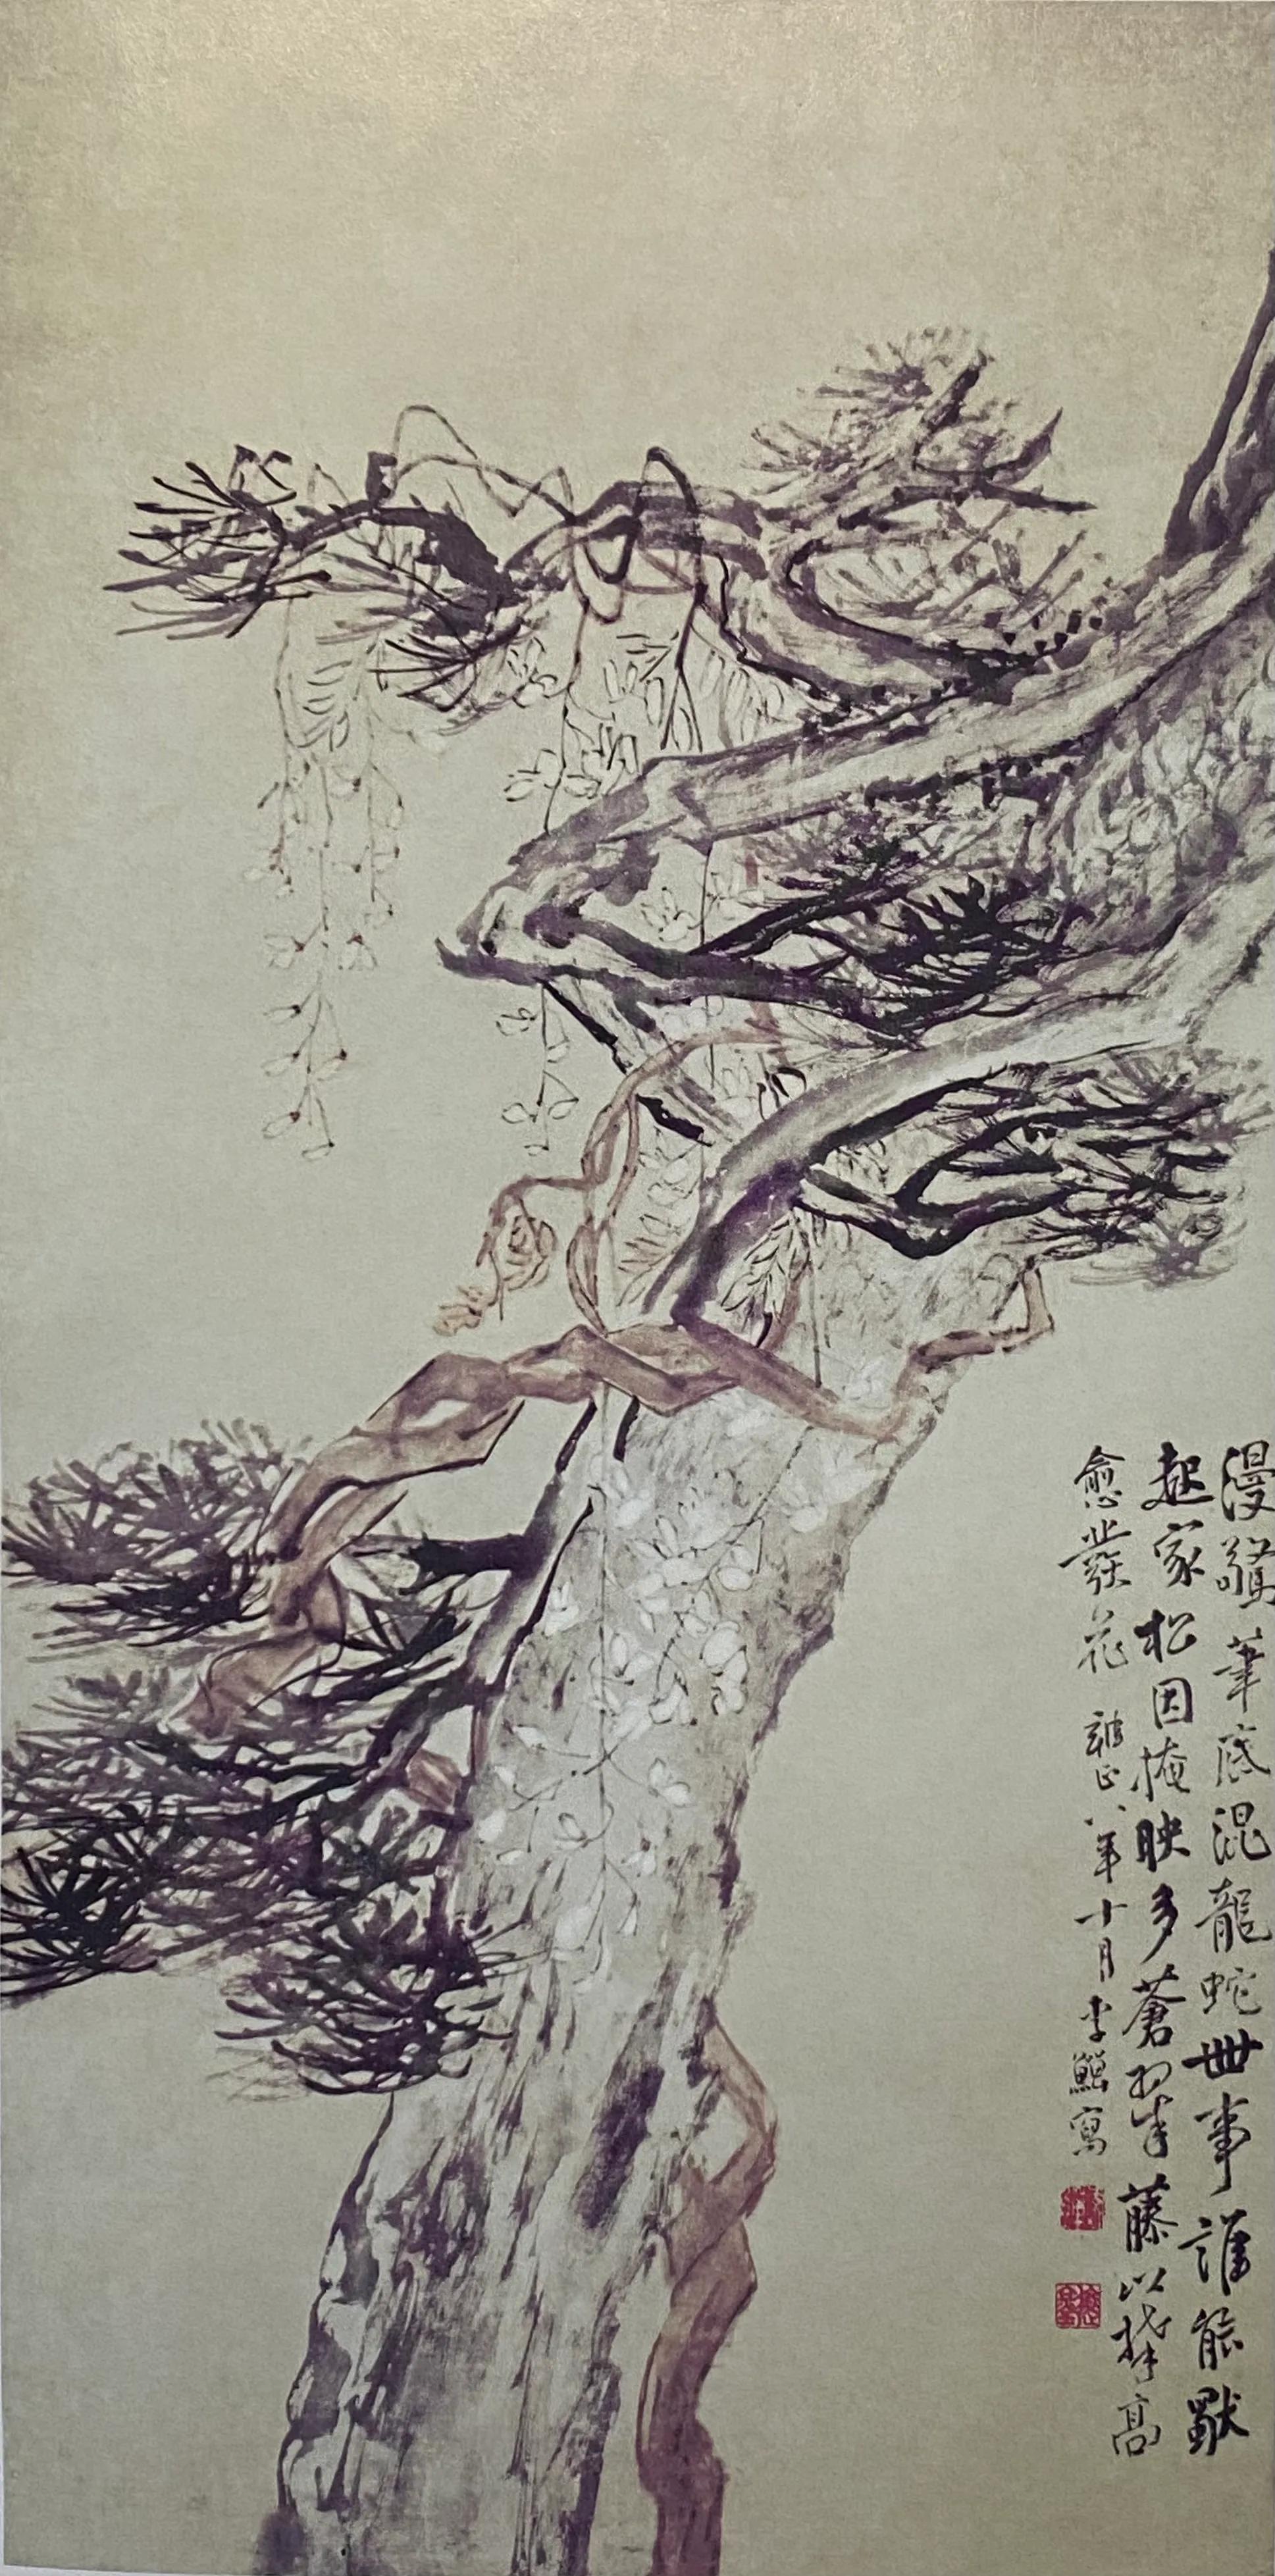 漫驚筆底混龍蛇世事誰能獨
起家松因掩映多蒼翠藤以攀高
愈發花 雍正八年十月李鱓寫